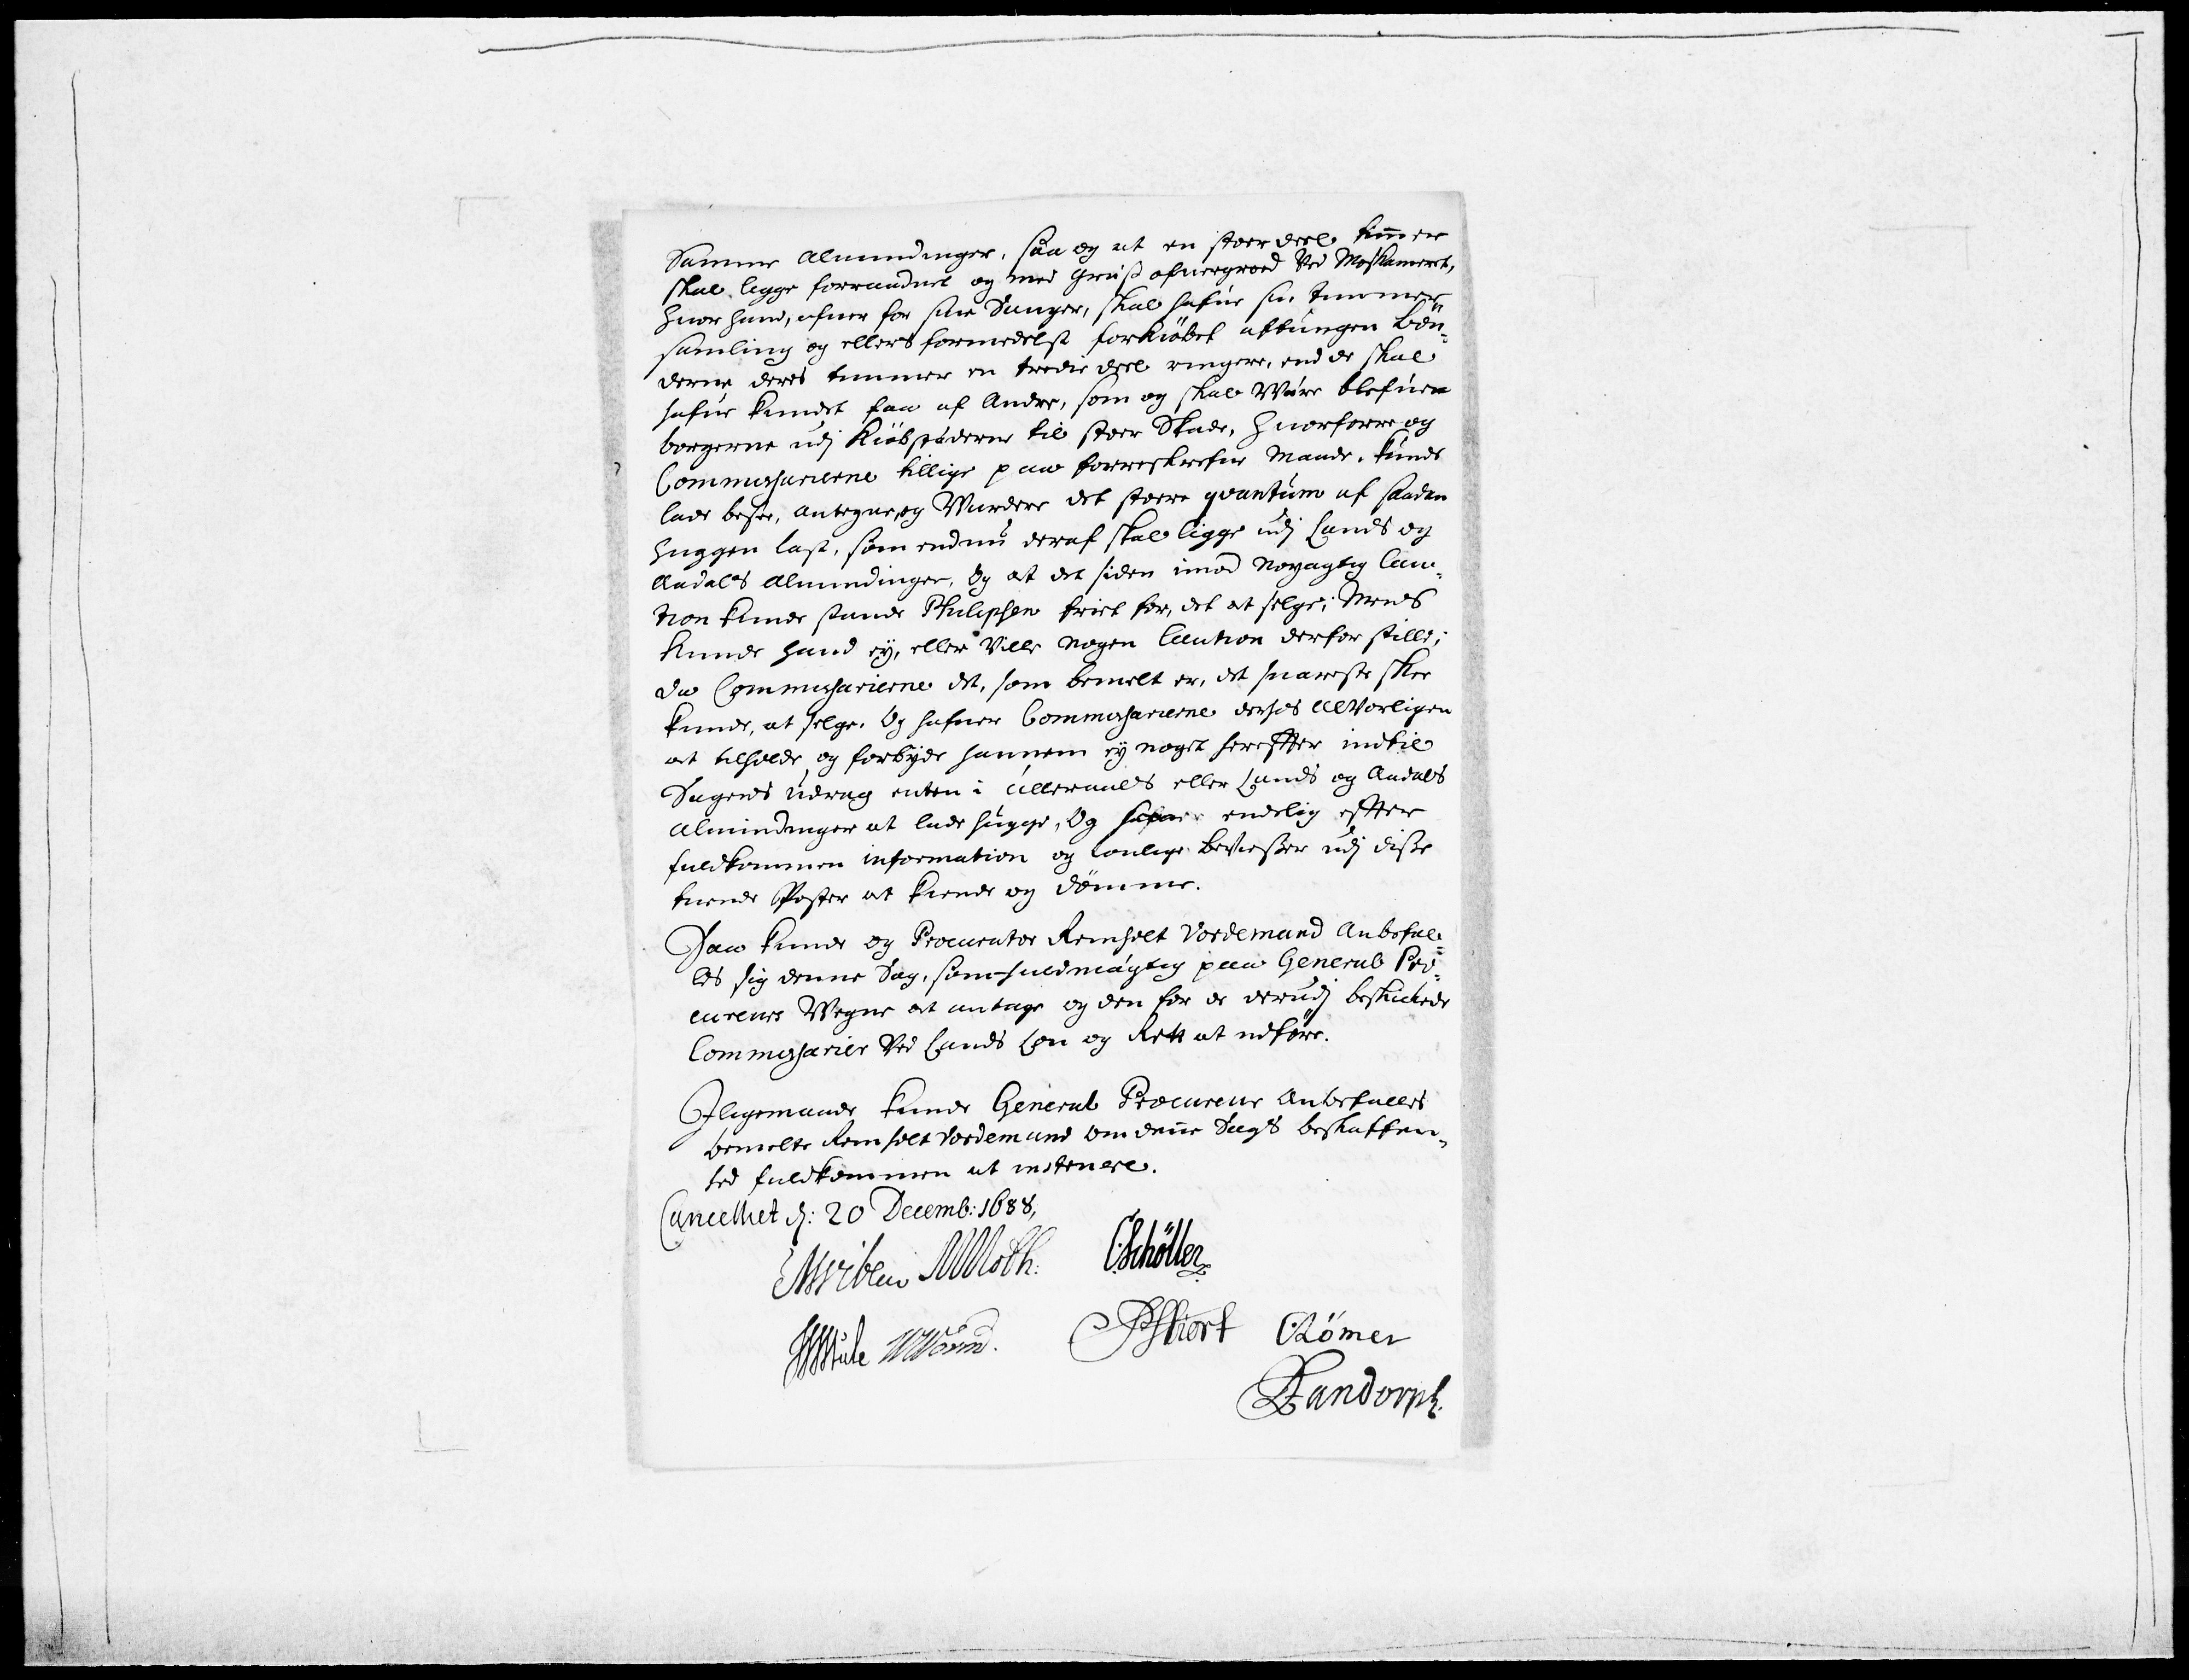 Samme Almindinger, saa og at en stoer deel timer
skal ligge forraadnet og med Gruus ofuergroed Ved Moskameret,
huor hand, ofuer for sine Sauger, skal hafue sin timmer
samling og ellers formedelst forkiöbet aftuungen Bön¬
derne deres timmer en tredie deel ringere, end de skal
hafue kundet faa af Andre, som og skal Wære blefuen
borgerne udj Kiöbstæderne til stoer Skade, Huorforre og
Commissarierne tillige paa forreskrefne Maade, kunde
lade besee, antegne, og Wurdere det stoere qvantum af saadan
huggen last, som endnu deraf skal ligge udj Lands og
Aadals Almindinger, Og at det siden imod Nöyagtig Cau¬
tion kunde stande Philipsen friet for, det at selge; Mens
kunde hand ey, eller Ville nogen Caution derfor stille;
da Commissarierne det, som bemelt er, det snareste skee
kunde, at selge. Og hafuer Commissarierne derhos Alvorligen
at tilholde og forbyde hannem ey noget herefter indtil
Sagens Udrag enten i Ulleraals eller Lands og Aadals
Almindinger at lade hugge, Og hafuer endelig efter
fuldkommen information og lovlige Bevisser udj disse
tuende Poster at kiende og dömme.
Saa kunde og Procurator Remholt Vordemand Anbefal¬
les sig denne Sag, som fuldmægtig paa General Pro¬
cureurs Wegne at antage og den for de derudj beskickede
Commissarier Ved Lands Lou og Rett at udföre.
Jligemaade kunde General Procureur Anbefalles
bemelte Remholt Vordemand om denne Sags beskaffen¬
hed fuldkommen at instruere.
Cancelliet d: 20 Decemb: 1688,
MViben MMoth: CSchöller
HHMule WWorm. PSkiort ORömer
Randorph.